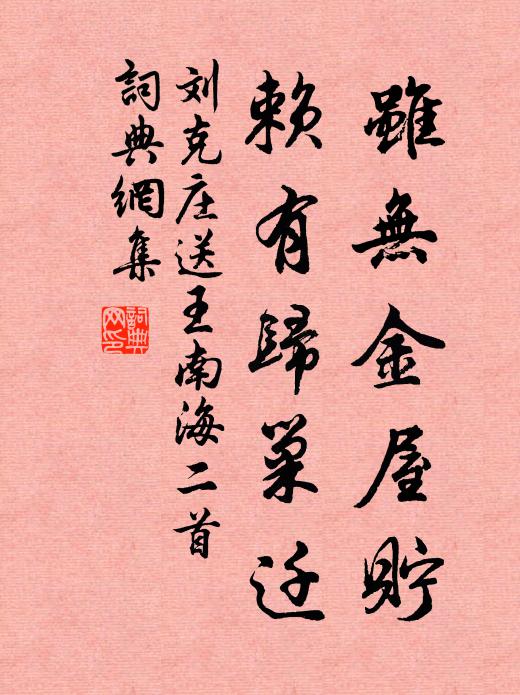 雖無金屋貯
賴有歸巢迁
刘克庄送王南海二首
詞典網集
詞典网印